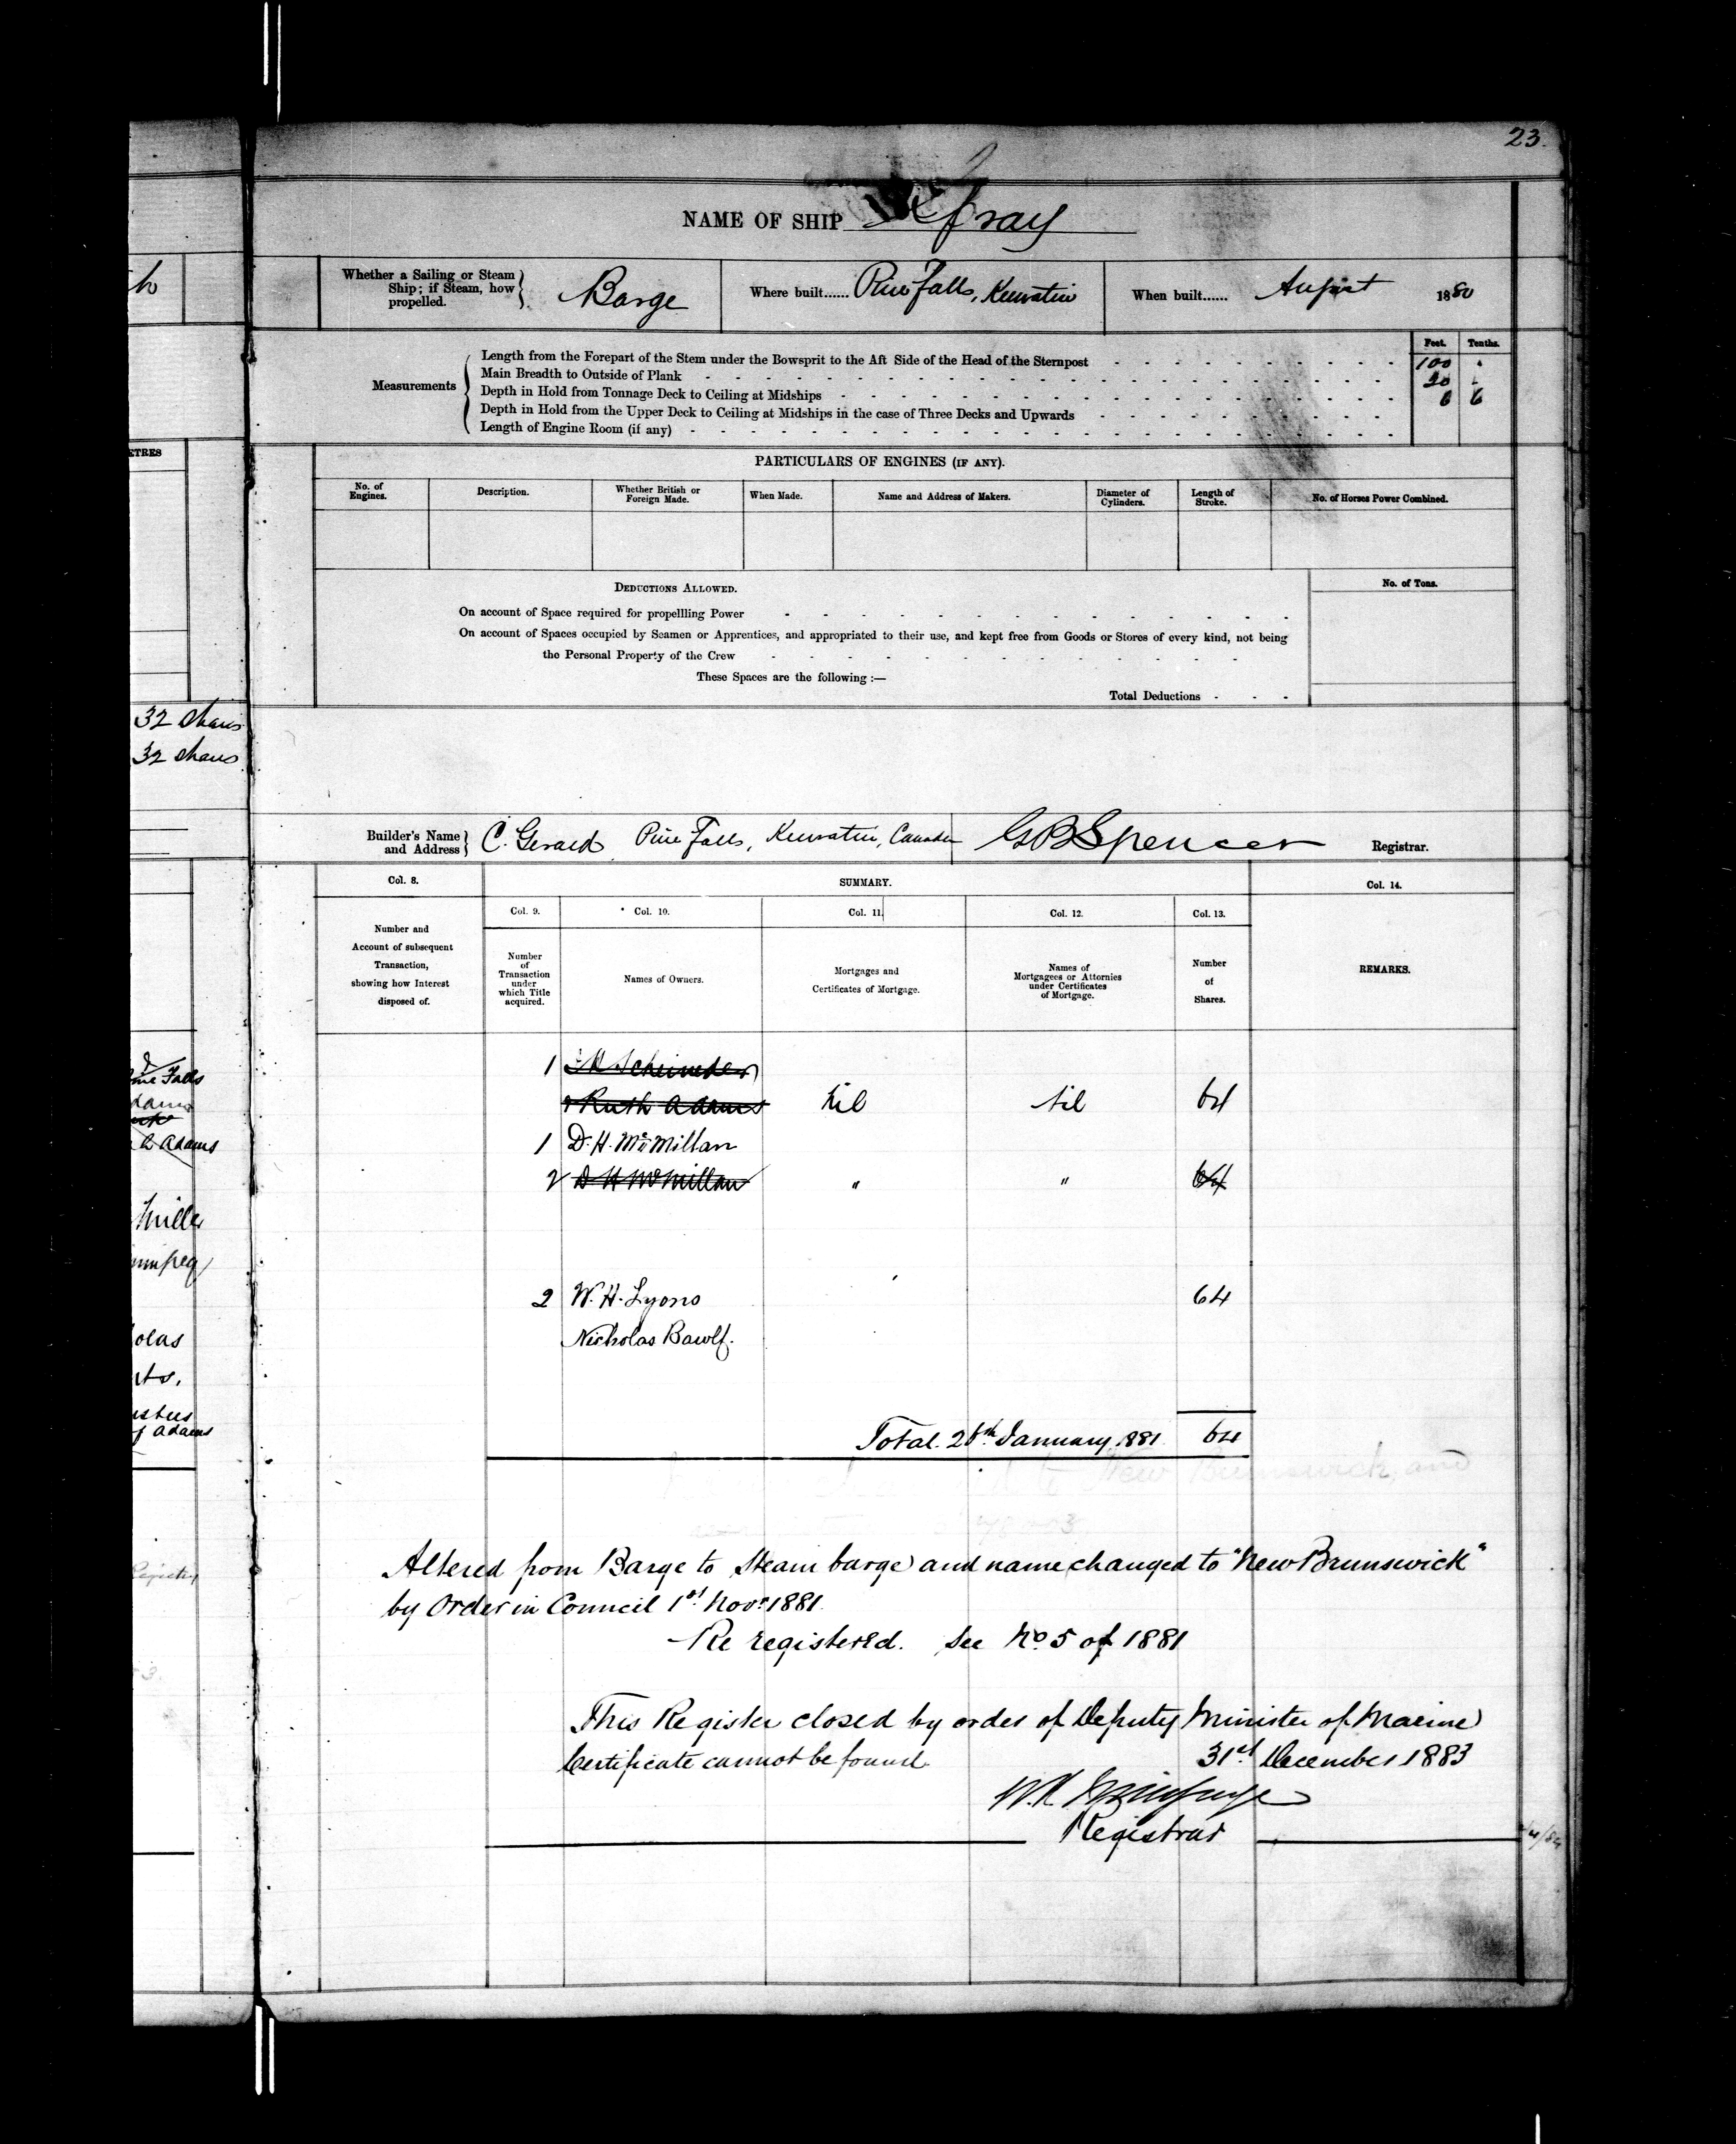 23.
NAME OF SHIP
Whether a Sailing or Steam Ship; if Steam, how propelled. Barge Where built...... Pine Falls, Keewatin When built...... August 1880
Feet. Tenths.
Length from the Forepart of the Stem under the Bowsprit to the Aft Side of the Head of the Sternpost 100 .
Main Breadth to Outside of Plank 20 .
Measurements Depth in Hold from Tonnage Deck to Ceiling at Midships 6 6
Depth in Hold from the Upper Deck to Ceiling at Midships in the case of Three Decks and Upwards
Length of Engine Room (if any)
ETRES
PARTICULARS OF ENGINES (IF ANY).
No. of Engines. Description. Whether British or Foreign Made. When Made. Name and Address of Makers. Diameter of Cylinders. Length of Stroke. No. of Horses Power Combined.
DEDUCTIONS ALLOWED. No. of Tons.
On account of Space required for propellling Power
On account of Spaces occupied by Seamen or Apprentices, and appropriated to their use, and kept free from Goods or Stores of every kind, not being
the Personal Property of the Crew
These Spaces are the following :—
Total Deductions
32 shares
32 shares
Builder's Name and Address C. Gerard Pine Falls, Keewatin, Canada GBSpencer Registrar.
Col. 8. SUMMARY. Col. 14.
Col. 9. Col. 10. Col. 11. Col. 12. Col. 13.
Number and Account of subsequent Transaction, showing how Interest disposed of.
Number of Transaction under which Title acquired.
Names of Owners.
Mortgages and Certificates of Mortgage.
Names of Mortgagees or Attornies under Certificates of Mortgage.
Number of Shares.
REMARKS.
1
& Ruth Adams Nil Nil 64
1 D. H. McMillan
2 D H McMillan " " 64
2 W. H. Lyons 64
Nicholas Bawlf.
Total. 26th January 1881 64
Altered from Barge to Steam barge and name changed to "New Brunswick"
by Order in Council 1st Novr 1881.
Re registered. See No. 5 of 1881
This Register closed by order of Deputy Minister of Marine
Certificate cannot be found. 31st December 1883
Registrar